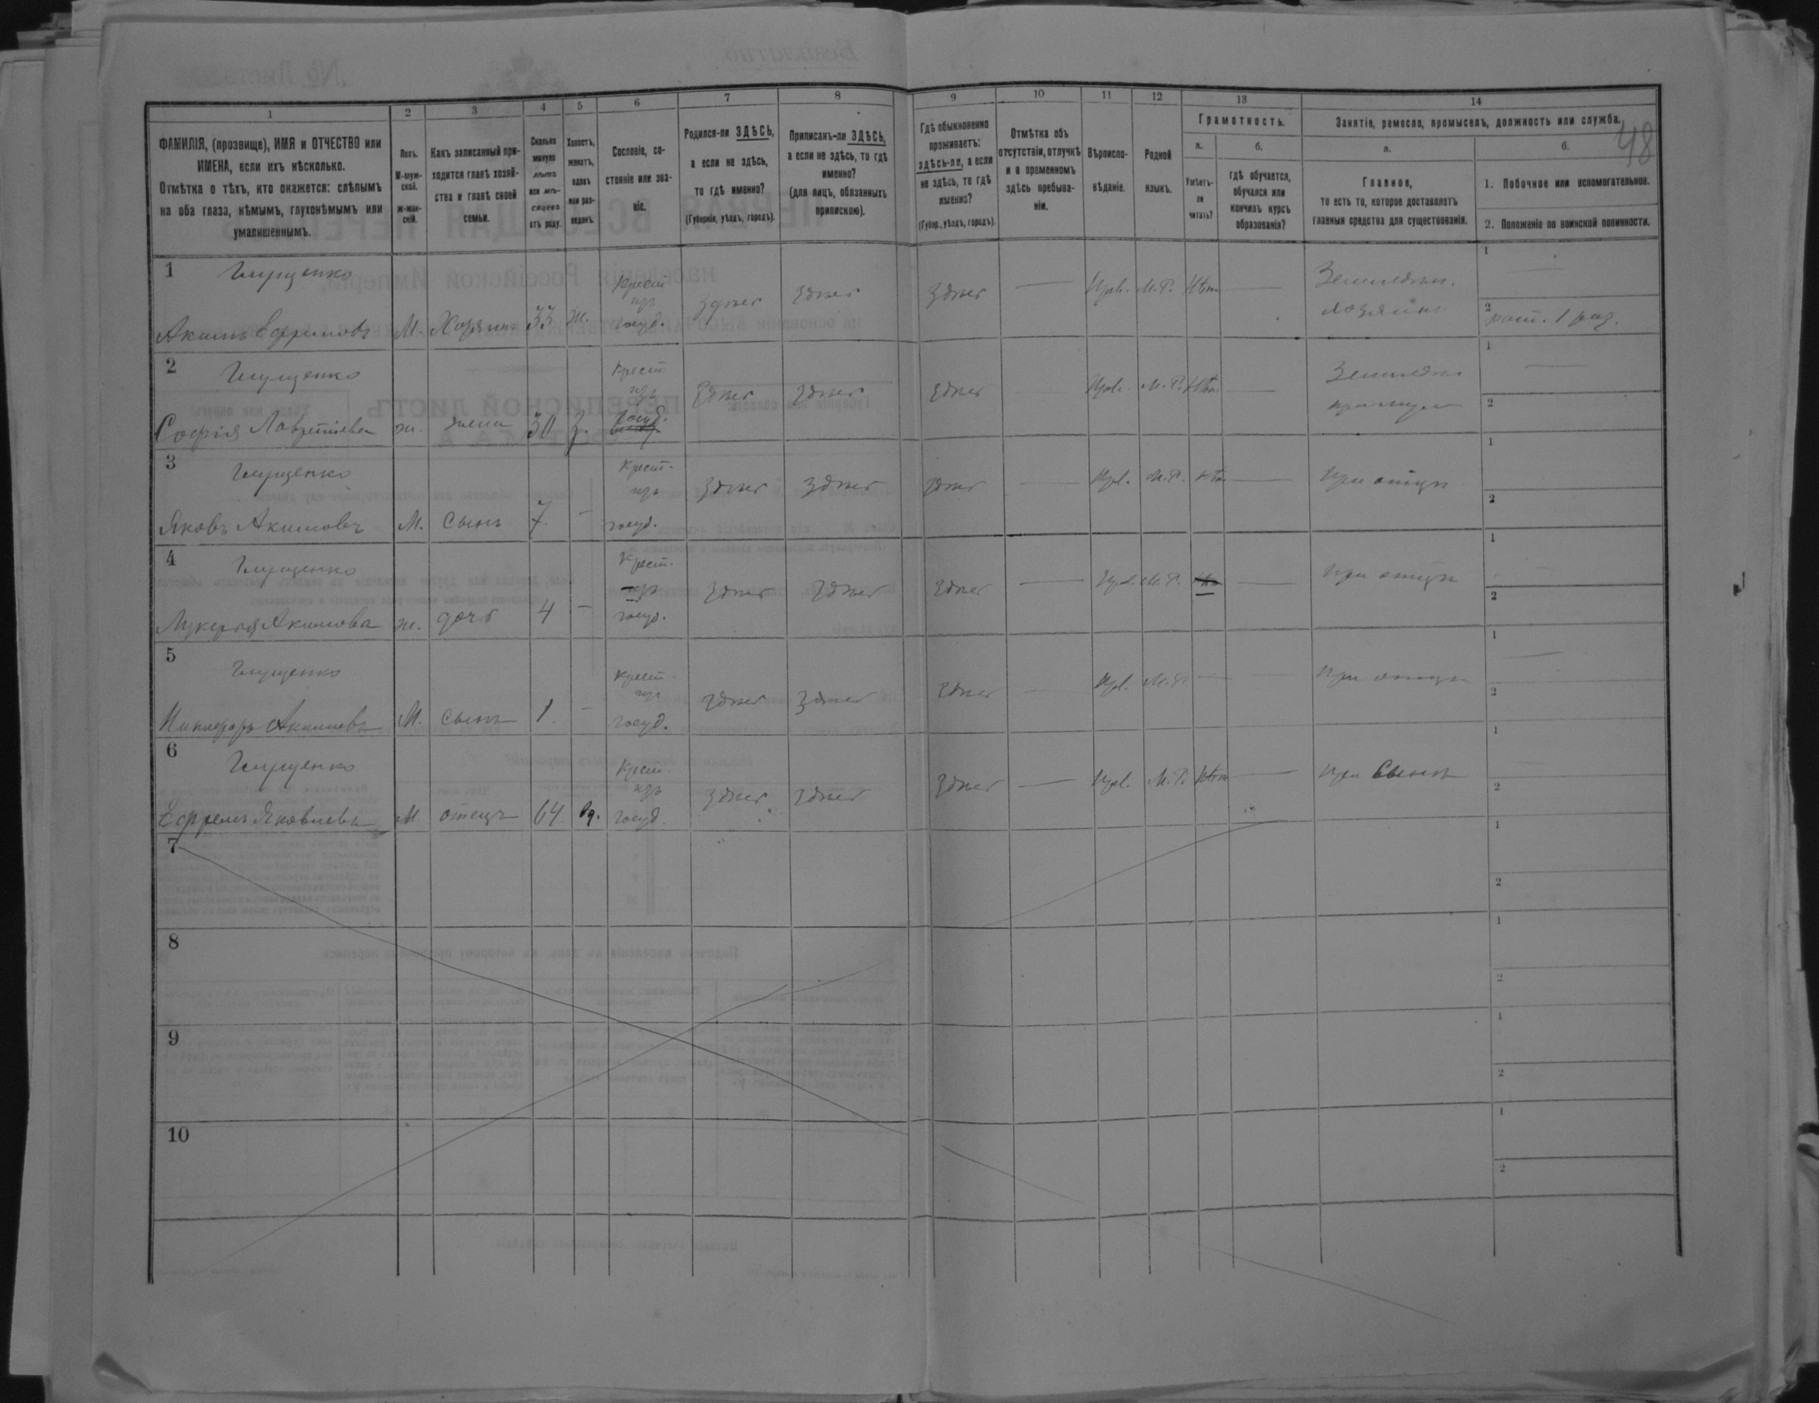 48
1
2
3
4
5
6
7
8
9
10
11
12
13
14
ФАМИЛІЯ, (прозвище), ИМЯ и ОТЧЕСТВО или
ИМЕНА, если ихъ нѣсколько.
Отмѣтка о тѣхъ, кто окажется: слѣпымъ
на оба глаза, нѣмымъ, глухонѣмымъ или
умалишеннымъ.
Полъ.
М-муж-
ской.
Ж-жен-
скій.
Какъ записанный при-
ходится главѣ хозяй-
ства и главѣ своей
семьи.
Сколько
минуло
лѣтъ
или мѣ-
сяцевъ
отъ роду.
Холостъ,
женатъ,
вдовъ
или раз-
веденъ.
Сословіе, со-
стояніе или зва-
ніе.
Родился-ли ЗДѢСЬ,
а если не здѣсь,
то гдѣ именно?
(Губернія, уѣздъ, городъ).
Приписанъ-ли ЗДѢСЬ,
а если не здѣсь, то гдѣ
именно?
(для лицъ, обязанныхъ
припискою).
Гдѣ обыкновенно
проживаетъ:
здѣсь-ли, а если
не здѣсь, то гдѣ
именно?
(Губер., уѣздъ, городъ).
Отмѣтка объ
отсутствіи, отлучкѣ
и о временномъ
здѣсь пребыва-
ніи.
Вѣроиспо-
вѣданіе.
Родной
языкъ.
Грамотность.
а.
Умѣетъ-
ли
читать?
б.
гдѣ обучается,
обучался или
кончилъ курсъ
образованія?
Занятіе, ремесло, промыселъ, должность или служба.
а.
Главное,
то есть то, которое доставляетъ
главныя средства для существованія.
б.
1. Побочное или вспомогательное.
2. Положеніе по воинской повинности.
1 Глущенко
Акимъ Ефремовъ М. Хозяинъ 33 ж. Крест. изъ госуд. здѣсь здѣсь здѣсь — Прв. М.Р. Нѣтъ — Земледѣл. хозяинъ 1 — 2 рат. 1 раз.
2 Глущенко
Софія ж. жена 30 з. Крест. изъ госуд. здѣсь здѣсь здѣсь — Прв. М.Р. Нѣтъ — Земледѣл. при мужѣ 1 — 2
3 Глущенко
Яковъ Акимовъ М. сынъ 7. — Крест. изъ госуд. здѣсь здѣсь здѣсь — Прв. М.Р. нѣтъ — при отцѣ 1 2
4 Глущенко
Лукерья Акимова ж. дочь 4 — Крест. изъ госуд. здѣсь здѣсь здѣсь — Прв. М.Р. — при отцѣ 1 2
5 Глущенко
Никифоръ Акимовъ М. сынъ 1. — Крест. изъ госуд. здѣсь здѣсь здѣсь — Прв. М.Р. — — при отцѣ 1 — 2
6 Глущенко
Ефремъ Яковлевъ М отецъ 64. вд. Крест. изъ госуд. здѣсь здѣсь здѣсь — Прв. М.Р. Нѣтъ — при сынѣ 1 — 2
7 1 2
8 1 2
9 1 2
10 1 2